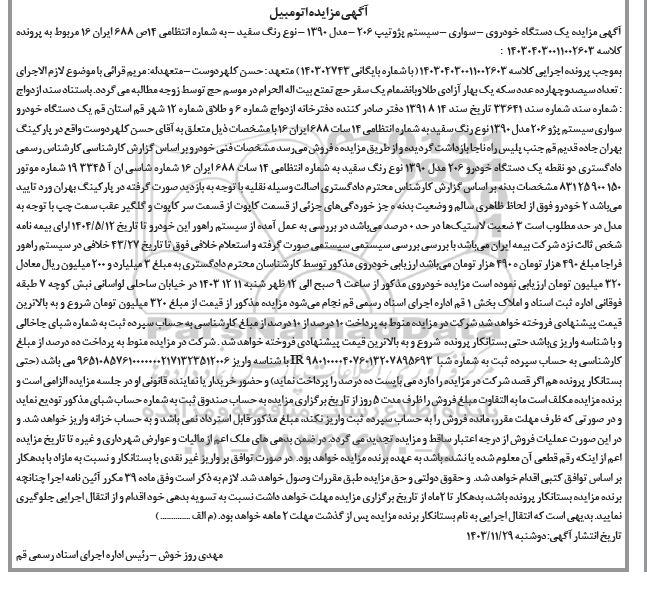 آگهی مزایده اتومبیل
آگهی مزایده یک دستگاه خودروی – سواری – سیستم پژوتیپ ۲۰۶ – مدل ۱۳۹۰ – نوع رنگ سفید – به شماره انتظامی ۱۴ص ۶۸۸ ایران ۱۶ مربوط به پرونده
کلاسه ۱۴۰۳۰۴۰۳۰۰۱۱۰۰۲۶۰۳ :
بموجب پرونده اجرایی کلاسه ۱۴۰۳۰۴۰۳۰۰۱۱۰۰۲۶۰۳ (با شماره بایگانی ۱۴۰۳۰۲۷۴۳) متعهد: حسن کلهردوست – متعهدله: مریم قرائی با موضوع لازم الاجرای
: تعداد سیصدوچهارده عدد سکه یک بهار آزادی طلا و بانضمام یک سفر حج تمتع بیت اله الحرام در موسم حج توسط زوجه مطالبه می گردد. باستناد سند ازدواج
: شماره سند شماره سند ۳۳۶۴۱ تاریخ سند ۱۴ ۸ ۱۳۹۱ دفتر صادر کننده دفترخانه ازدواج شماره ۶ و طلاق شماره ۱۲ شهر قم استان قم یک دستگاه خودرو
سواری سیستم پژو ۲۰۶ مدل ۱۳۹۰ نوع رنگ سفید به شماره انتظامی ۱۴ سات ۶۸۸ ایران ۱۶ با مشخصات ذیل متعلق به آقای حسن کلهردوست واقع در پارکینگ
بهران جاده قدیم قم جنب پلیس راه ناجا بازداشت گردیده و از طریق مزایده ه فروش می رسد مشخصات فنی خودرو بر اساس گزارش کارشناسی کارشناس رسمی
دادگستری دو نقطه یک دستگاه خودرو ۲۰۶ مدل ۱۳۹۰ نوع رنگ سفید به شماره انتظامی ۱۴ سات ۶۸۸ ایران ۱۶ شماره شاسی ان آ ۳۳۴۵ ۱۹ شماره موتور
۱۵۰ ۹۰۰ ۸۳۱۲۵ مشخصات بدنه بر اساس گزارش کارشناس محترم دادگستری اصالت وسیله نقلیه با توجه به بازدید صورت گرفته در پارکینگ بهران ورد تایید
می‌باشد ۲ خودرو فوق از لحاظ ظاهری سالم و وضعیت بدنه ه جز خوردگی‌های جزئی از قسمت کاپوت از قسمت سر کاپوت و گلگیر عقب سمت چپ با توجه به
مدل در حد مطلوب است ۳ ضعیت لاستیک‌ها در حد ۰ درصد می‌باشد در بررسی به عمل آمده از سیستم راهور این خودرو تا تاریخ ۱۴۰۴/۵/۱۲ ارای بیمه نامه
شخص ثالث نزد شرکت بیمه ایران می‌باشد با بررسی بررسی سیستمی سیستمی صورت گرفته و استعلام خلافی فوق تا تاریخ ۴۳/۲۷ خلافی در سیستم راهور
فراجا مبلغ ۴۹۰ هزار تومان ه ۴۹۰ هزار تومان می‌باشد ارزیابی خودروی مذکور توسط کارشناسان محترم دادگستری به مبلغ ۳ میلیارد و ۲۰۰ میلیون ریال معادل
۳۲۰ میلیون تومان ارزیابی نموده است مزایده خودروی مذکور از ساعت ۹ صبح الی ۱۲ ظهر شنبه ۱۱ ۱۲ ۱۴۰۳ در خیابان ساحلی لواسانی نبش کوچه ۷ طبقه
فوقانی اداره ثبت اسناد و املاک بخش ۱ قم اداره اجرای اسناد رسمی قم نجام می‌شود مزایده مذکور از قیمت از مبلغ ۳۲۰ میلیون تومان شروع و به بالاترین
قیمت پیشنهادی فروخته خواهد شد شرکت در مزایده منوط به پرداخت ۱۰ درصد از ۱۰ درصد از مبلغ کارشناسی به حساب سپرده ثبت به شماره شبای جاخالی
و با شناسه واریز ی‌باشد حتی بستانکار پرونده شروع و به بالاترین قیمت پیشنهادی فروخته خواهد شد . شرکت در مزایده منوط به پرداخت ده درصد از مبلغ
کارشناسی به حساب سپرده ثبت به شماره شبا IR ۹۸۰۱۰۰۰۰۴۰۷۶۰۱۳۲۰۷۸۹۵۶۹۳ با شناسه واریز ۹۶۵۱۰۸۵۷۶۱۰۰۰۰۰۰۰۲۱۷۱۳۲۳۵۱۲۰۰۶ می باشد (حتی
بستانکار پرونده هم اگر قصد شرکت در مزایده را دارد می بایست ده درصد را پرداخت نماید) و حضور خریدار یا نماینده قانونی او در جلسه مزایده الزامی است و
برنده مزایده مکلف است ما به التفاوت مبلغ فروش را ظرف مدت ۵ روز از تاریخ برگزاری مزایده به حساب صندوق ثبت به شماره حساب شبای مذکور تودیع نماید
و در صورتی که ظرف مهلت مقرر، مانده فروش را به حساب سپرده ثبت واریز نکند، مبلغ مذکور قابل استرداد نمی باشد و به حساب خزانه واریز خواهد شد. و
در این صورت عملیات فروش از درجه اعتبار ساقط و مزایده تجدید می گردد. در ضمن بدهی های ملک اعم از مالیات و عوارض شهرداری و غیره تا تاریخ مزایده
اعم از اینکه رقم قطعی آن معلوم شده یا نشده باشد به عهده برنده مزایده خواهد بود. در صورت توافق بر واریز غیر نقدی با بستانکار و نسبت به مازاد با بدهکار
بر اساس توافق کتبی اقدام خواهد شد. و حقوق دولتی و حق مزایده طبق مقررات وصول خواهد شد. لازم به ذکر است وفق ماده ۳۹ مکرر آئین نامه اجرا چنانچه
برنده مزایده بستانکار پرونده باشد، بدهکار تا ۲ماه از تاریخ برگزاری مزایده مهلت خواهد داشت نسبت به تسویه بدهی خود اقدام و از انتقال اجرایی جلوگیری
نمایید. بدیهی است که انتقال اجرایی به نام بستانکار برنده مزایده پس از گذشت مهلت ۲ ماهه خواهد بود. (م الف ..............)
تاریخ انتشار آگهی: دوشنبه ۱۴۰۳/۱۱/۲۹
مهدی روز خوش – رئیس اداره اجرای اسناد رسمی قم